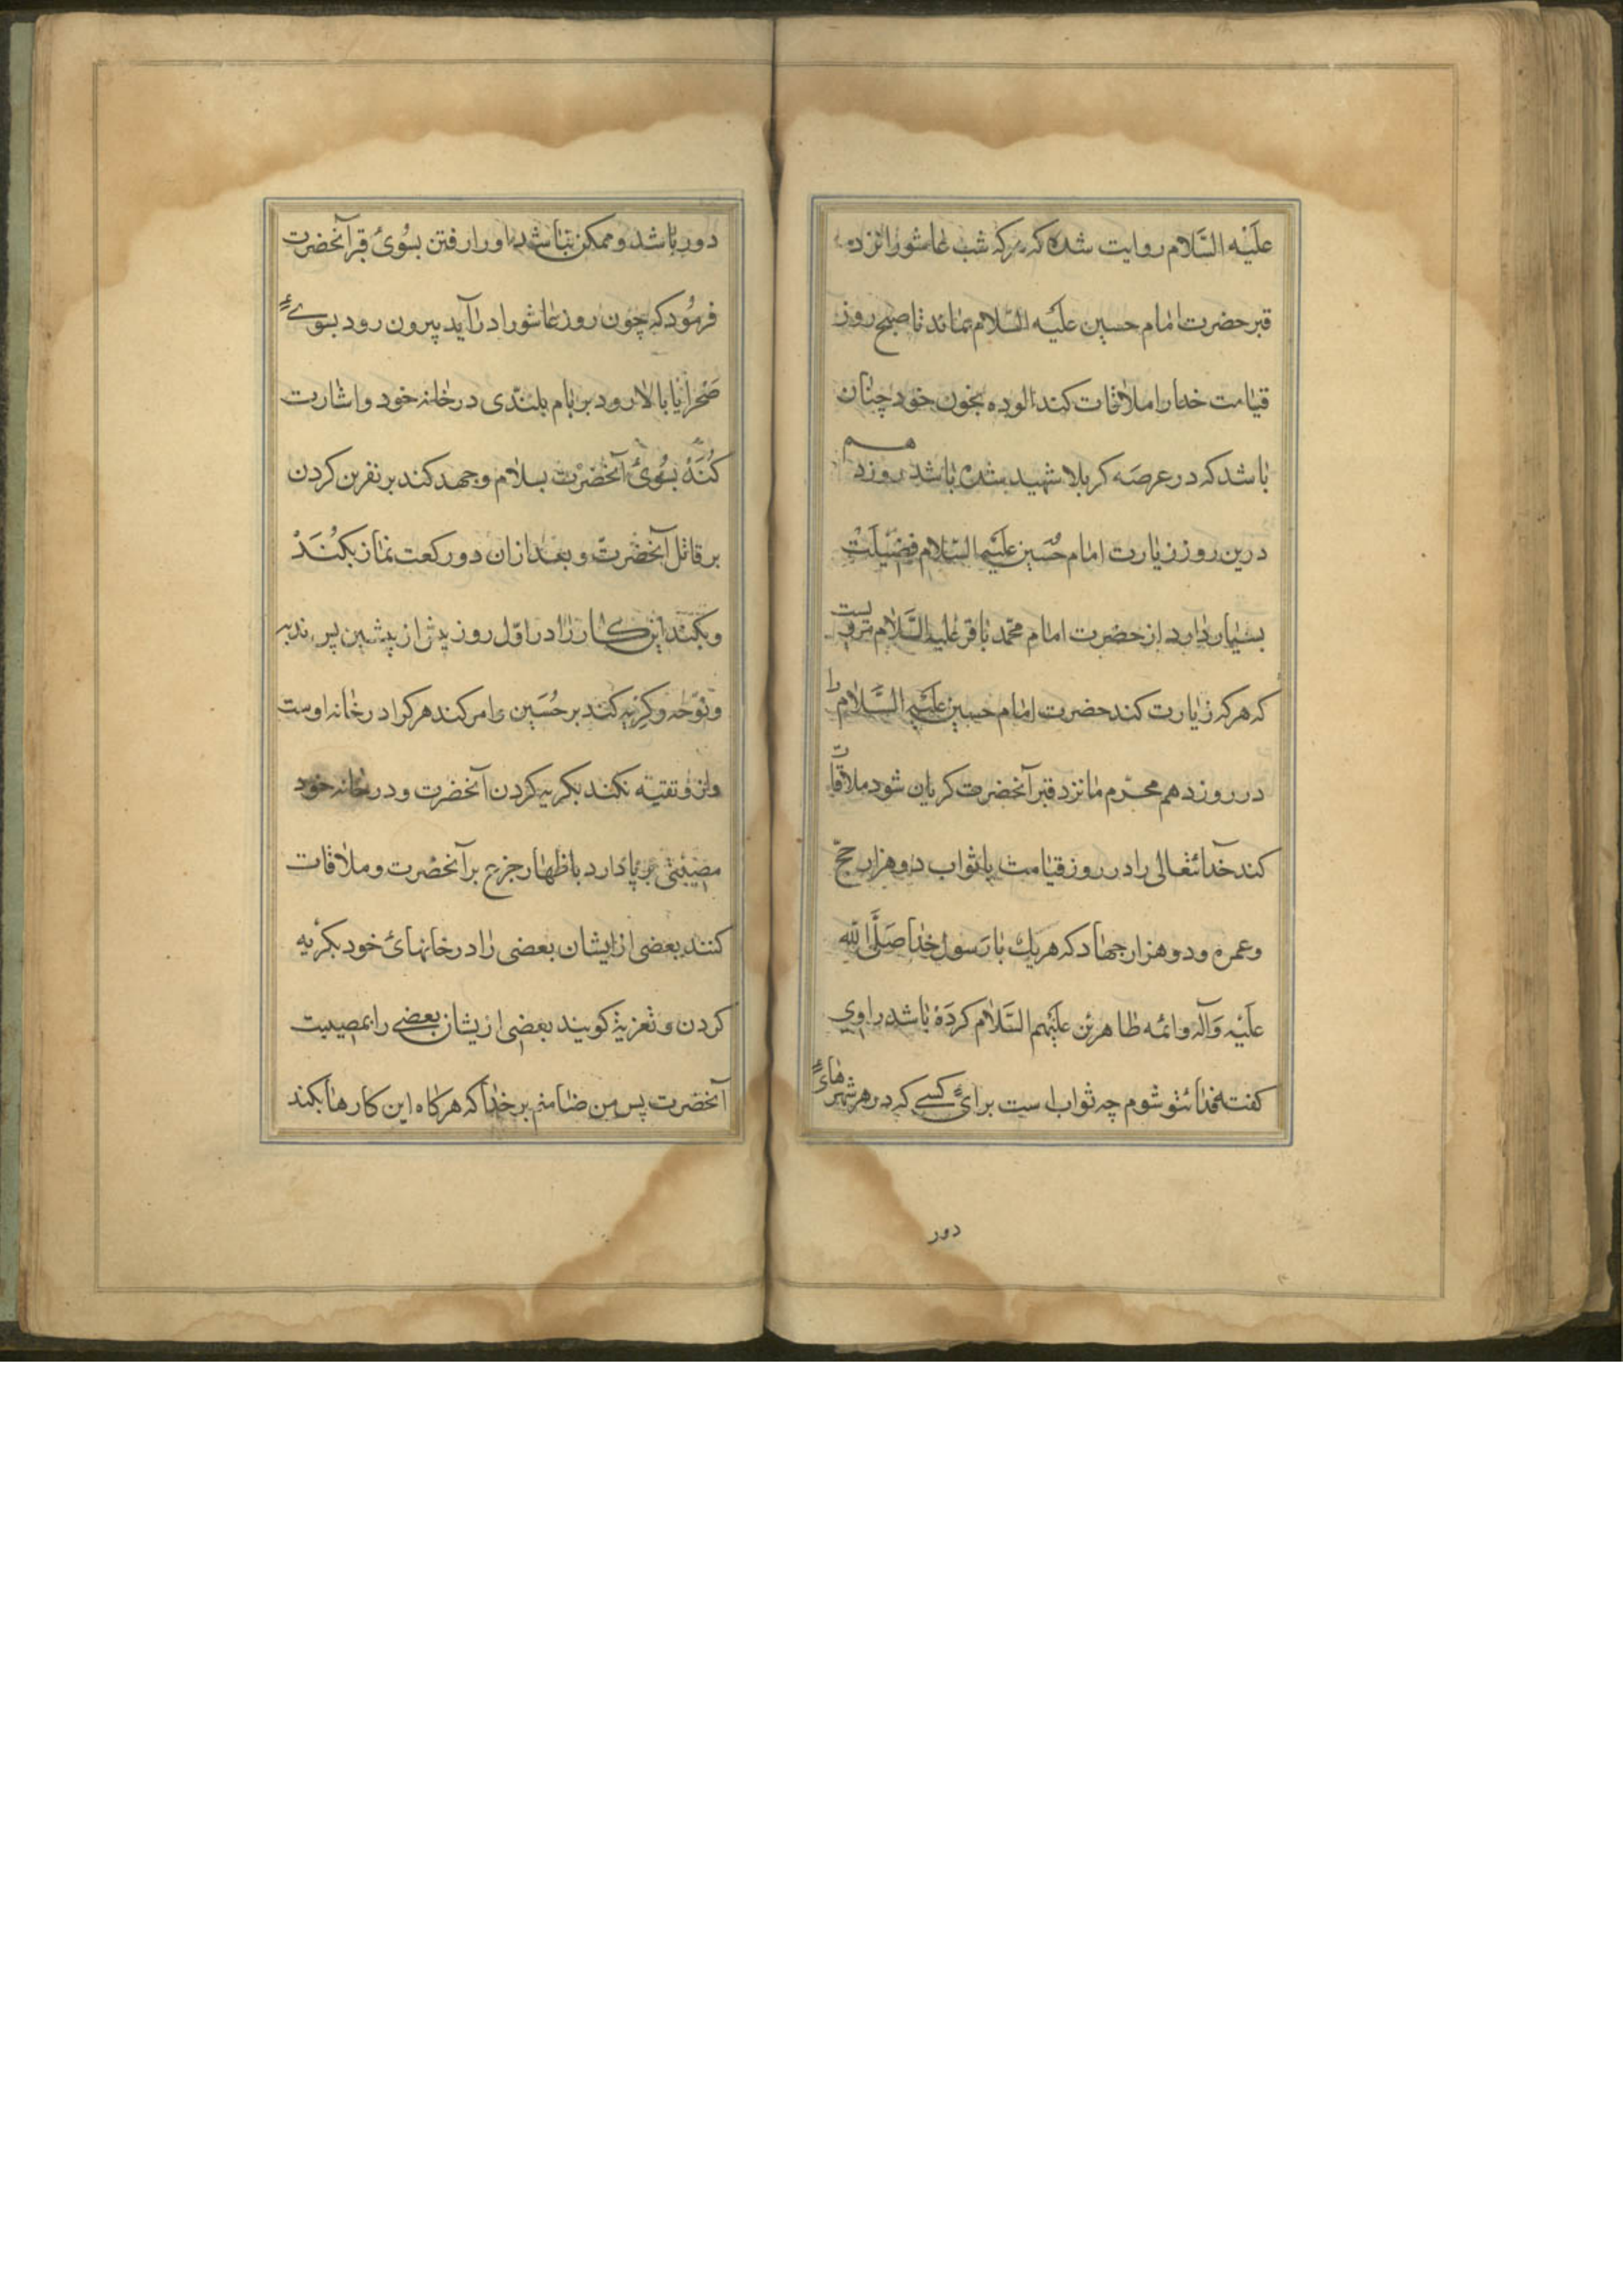 علیه السلام روایت شده که هرکه شب عاشورا نزد
قبر حضرت امام حسین علیه السلام بماند تا صبح روز
قیامت خدا را ملاقات کند الوده بخون خود چنان
باشد که در عرصه کربلا شهید شده باشد روز دهم
درین روز زیارت امام حُسَین علیه السّلام فضیلت
بسیار دارد از حضرت امام محمّد باقر علیه السَّلام مرویست
که هرکه زیارت کند حضرت امام حسین علیه السَّلام را
در روز دهم محرّم تا نزد قبر آنحضرت کریان شود ملاقات
کند خدایتعالی را در روز قیامت با ثواب دو هزار حجّ
و عمره و دو هزار جهاد که هریک با رَسول خدا صَلَّی الله
علیه وَآله وائمه طاهرین علیهم السَّلام کردَه باشد راوی
کفت فدایتو شوم چه ثواب است برای کسے که در شهرهای
دور
دور باشد و ممکن نباشد او را رفتن بسُوی قبر آنحضرت
فرمُود که چون روز عاشورا درآید بیرون رود بسوے
صَحرا یا بالا رود بر بام بلندی در خانه خود و اشارت
کُنَد بسُوی آنحضرت بسلام و جهد کند بر نفرین کردن
بر قاتل آنحضرت و بعد ازان دو رکعت نماز بکُنَدْ
و بکند این کار را در اوّل روز پیش از پیشین پس ندبه
و نوحه و کریه کند بر حُسَین و امر کند هرکرا در خانه اوست
و ازو تقیه نکند بکریه کردن آنحضرت و در خانه خود
مصیبتی برپا دارد باظهار جزع بر آنحضرت و ملاقات
کنند بعضی از ایشان بعضی را در خانهای خود بکریه
کردن و تعزیة کویند بعضی از یشان بعضے را بمصیبت
آنحضرت پس من ضامنم بر خدا که هرکاه این کارها بکند